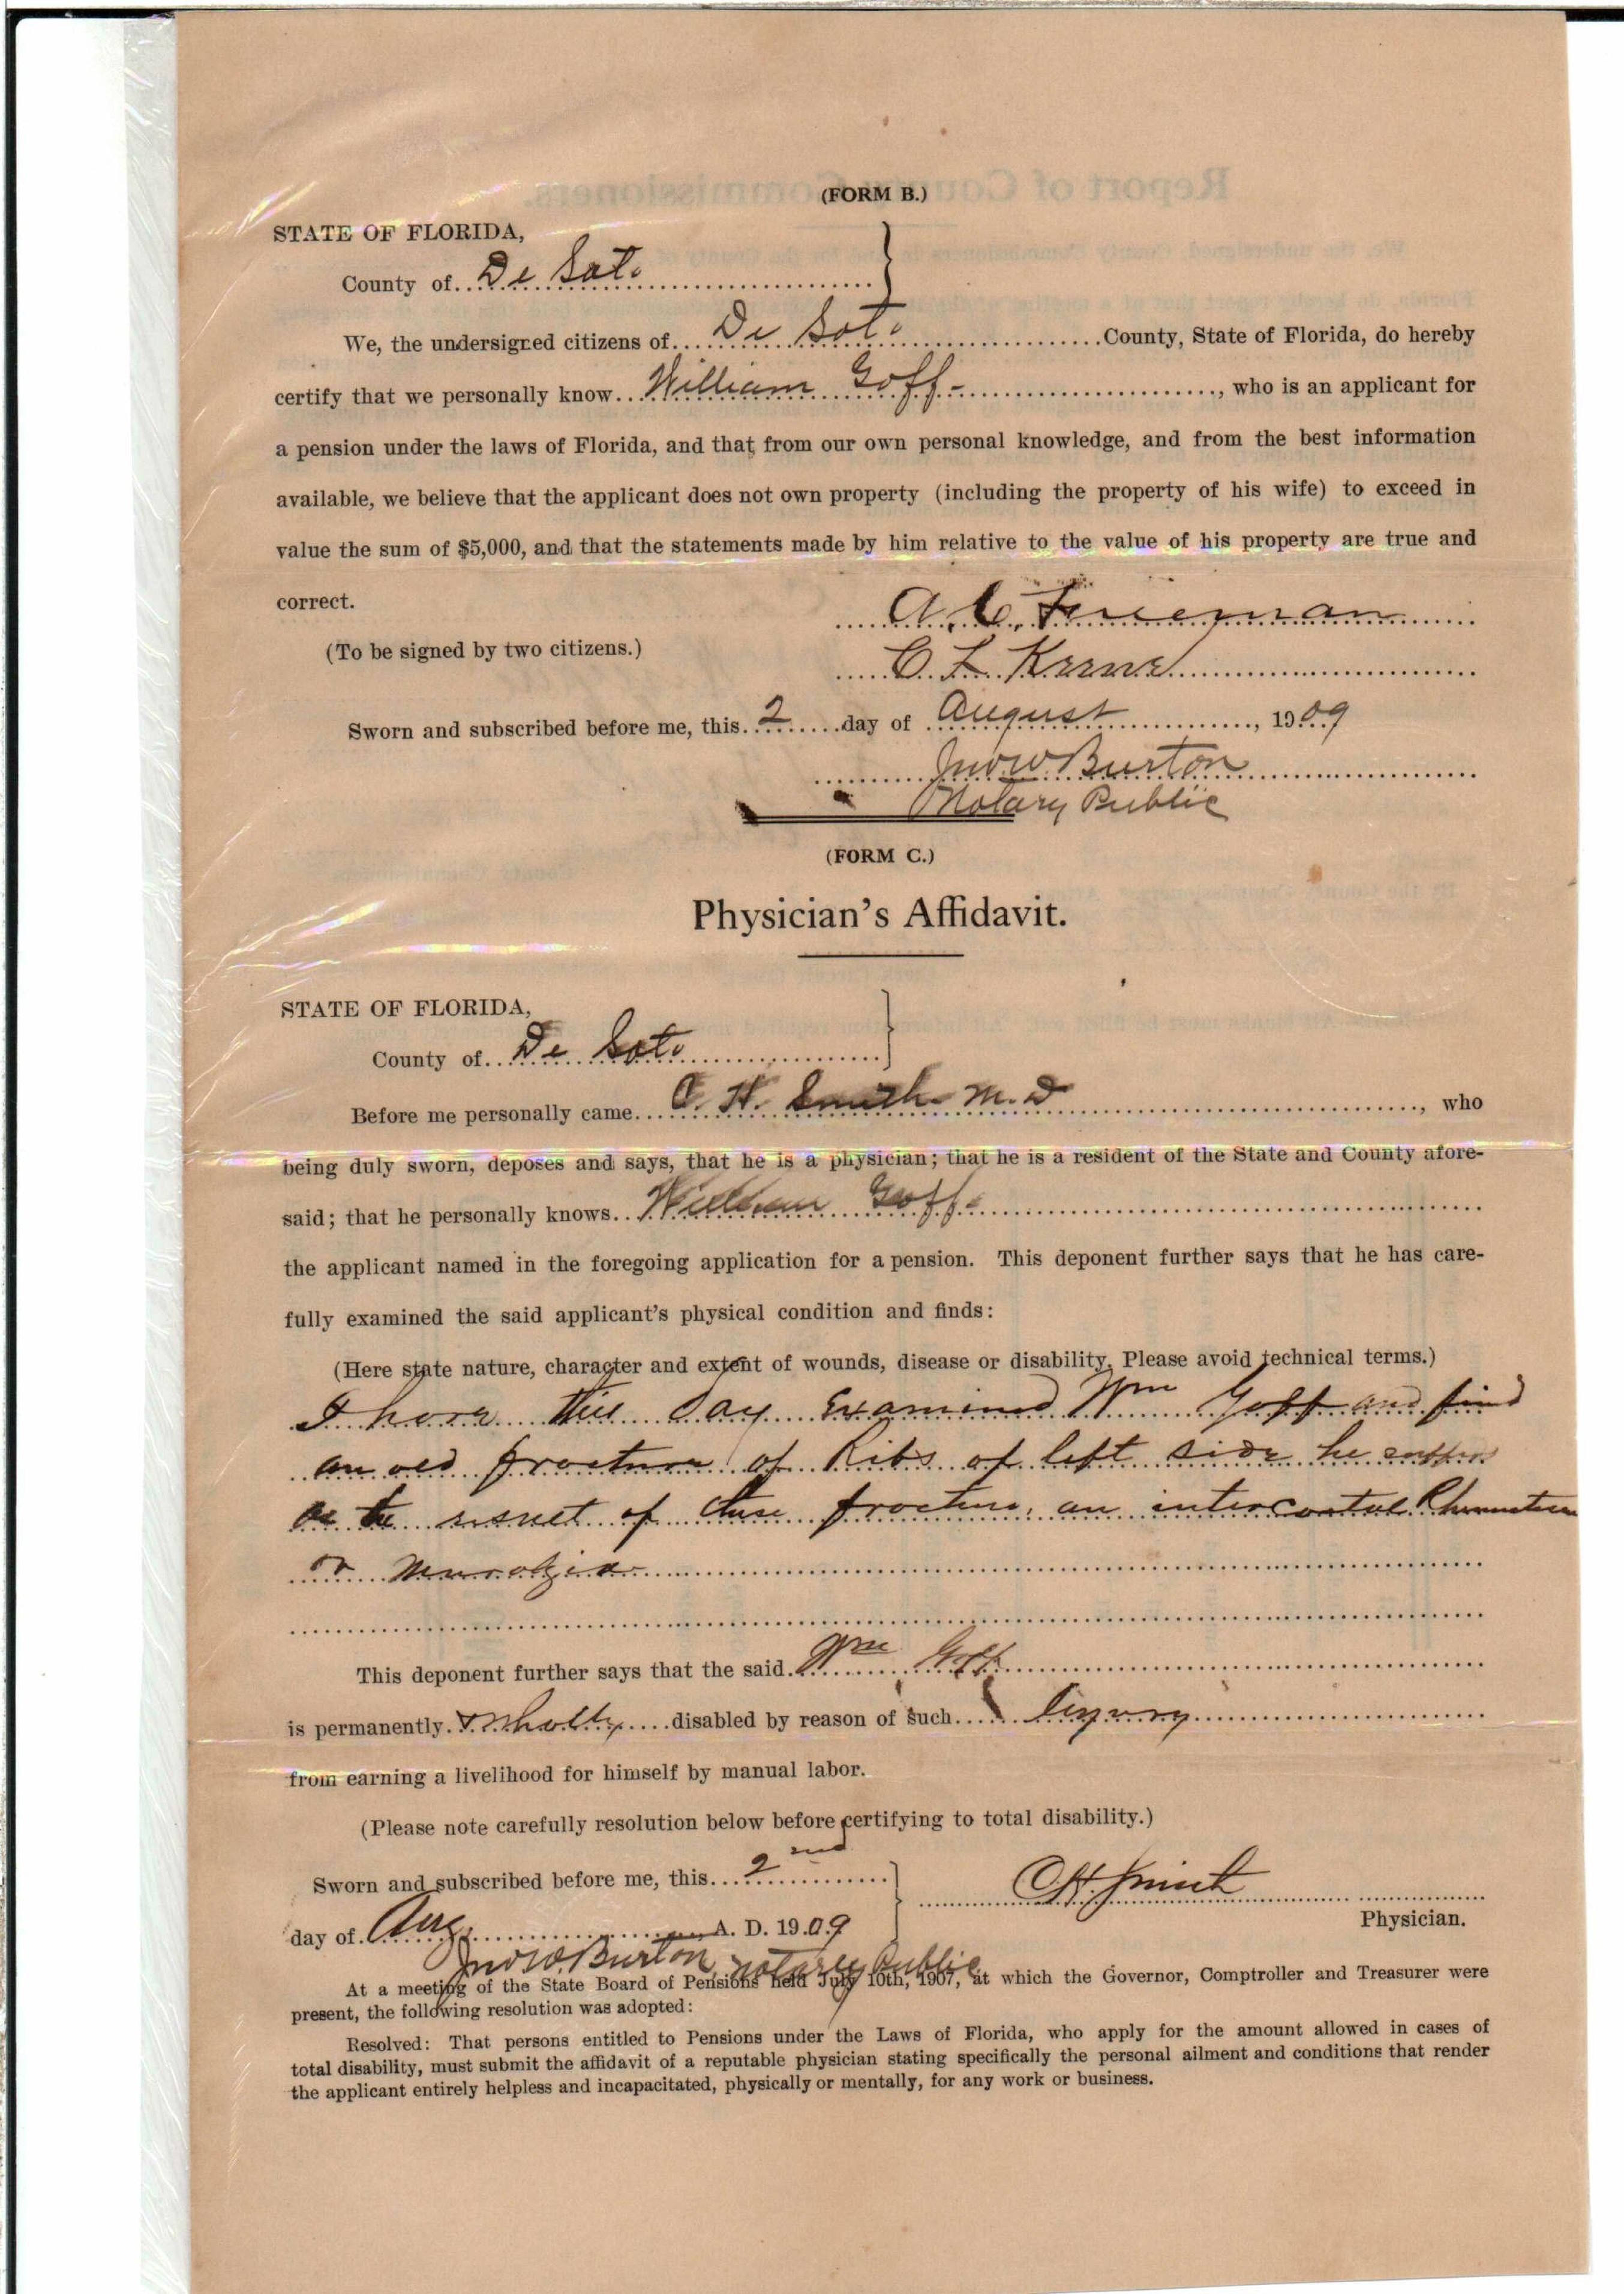 (FORM B.)
STATE OF FLORIDA,
County of De Soto
We, the undersigned citizens of De Soto County, State of Florida, do hereby
certify that we personally know William Goff, who is an applicant for
a pension under the laws of Florida, and that from our own personal knowledge, and from the best information
available, we believe that the applicant does not own property (including the property of his wife) to exceed in
value the sum of $5,000, and that the statements made by him relative to the value of his property are true and
correct.
A. C. Freeman
(To be signed by two citizens.)
C. L. Keene
Sworn and subscribed before me, this 2 day of August, 1909
Jno W Burton
Notary Public
(FORM C.)
Physician's Affidavit.
STATE OF FLORIDA,
County of De Soto
Before me personally came O. H. Smith M. D, who
being duly sworn, deposes and says, that he is a physician; that he is a resident of the State and County afore-
said; that he personally knows William Goff
the applicant named in the foregoing application for a pension. This deponent further says that he has care-
fully examined the said applicant's physical condition and finds:
(Here state nature, character and extent of wounds, disease or disability. Please avoid technical terms.)
I have this day Examined Wm Goff and find
an old fracture of Ribs of left side he suffers
as the result of these fracture, an intercostal Rhumatism
or neuralgia
This deponent further says that the said Wm Goff
is permanently & wholly disabled by reason of such injury
from earning a livelihood for himself by manual labor.
(Please note carefully resolution below before certifying to total disability.)
Sworn and subscribed before me, this 2nd
OH Smith
day of Aug. A. D. 1909
Physician.
Jno W. Burton, notary Public
At a meeting of the State Board of Pensions held July 10th, 1907, at which the Governor, Comptroller and Treasurer were
present, the following resolution was adopted:
Resolved: That persons entitled to Pensions under the Laws of Florida, who apply for the amount allowed in cases of
total disability, must submit the affidavit of a reputable physician stating specifically the personal ailment and conditions that render
the applicant entirely helpless and incapacitated, physically or mentally, for any work or business.